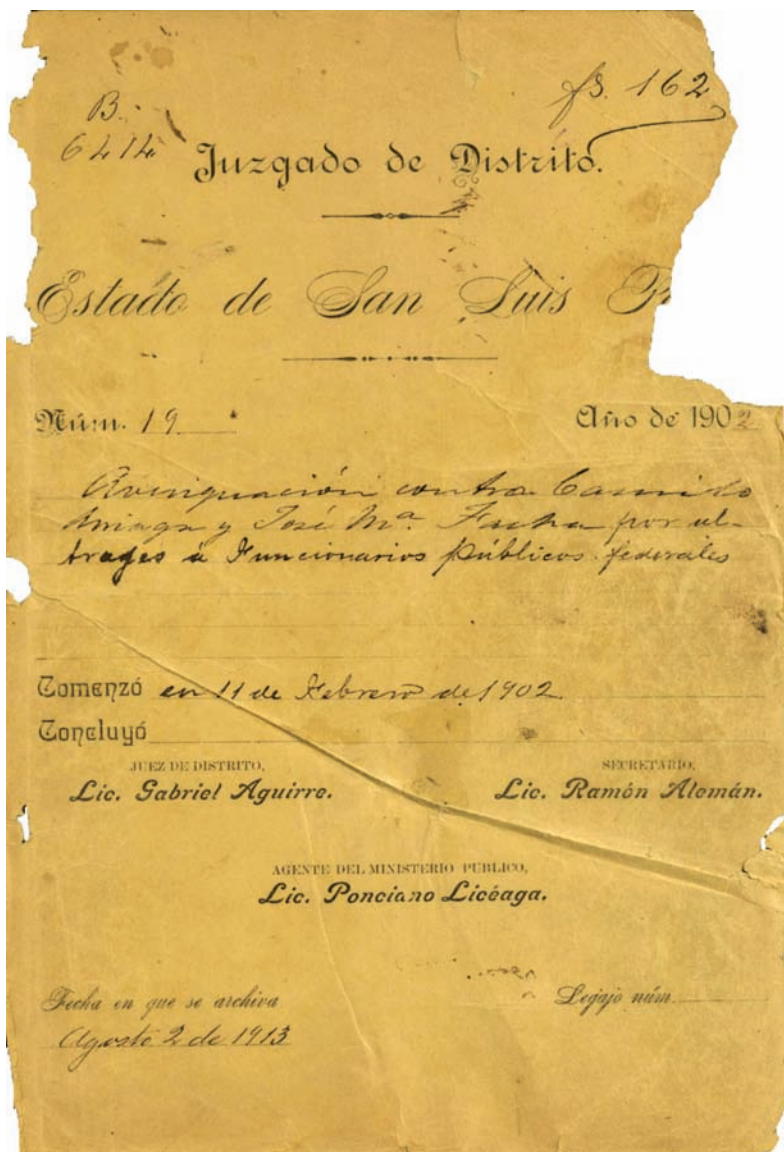 B.
fs. 162
6414
Juzgado de Distrito.
Estado de San Luis P
Núm. 19
Año de 1902
Averiguación contra Camilo
Arriaga y José Mª. Facha por ul-
trages á Funcionarios públicos federales
Comenzó en 11 de Febrero de 1902
Concluyó
JUEZ DE DISTRITO,
Lic. Gabriel Aguirre.
SECRETARIO,
Lic. Ramón Alemán.
AGENTE DEL MINISTERIO PÚBLICO,
Lic. Ponciano Licéaga.
Fecha en que se archiva
Legajo núm.
Agosto 2 de 1913